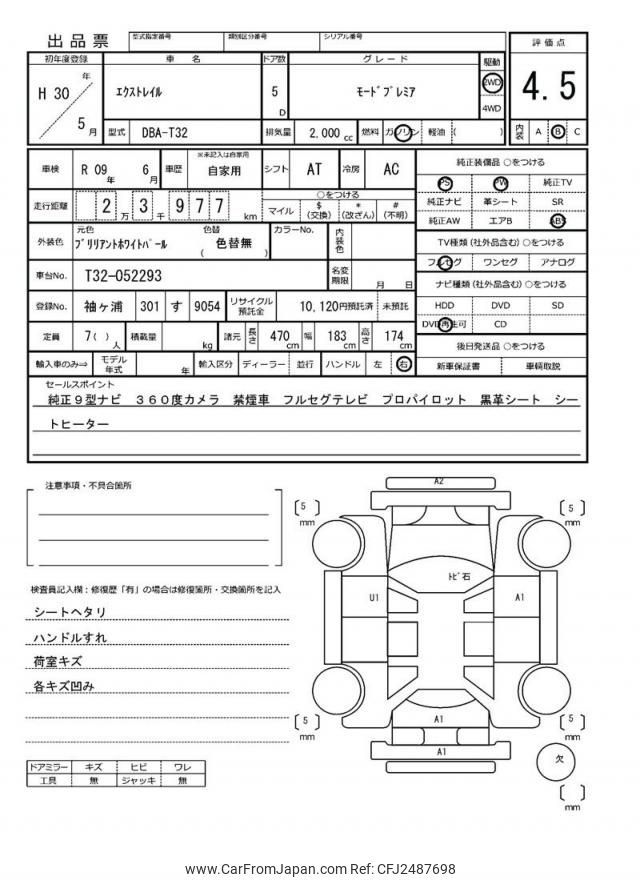 出品票 型式指定番号 類別区分番号 シリアル番号
評価点
4.5
内装 A B C
初年度登録 車名 ドア数 グレード 駆動
H 30 年 5 月
エクストレイル 5 D モードプレミア 2WD 4WD
型式 DBA-T32 排気量 2,000 cc 燃料 ガソリン 軽油 ( )
車検 R 09 年 6 月 車歴 ※未記入は自家用 自家用 シフト AT 冷房 AC
走行距離 2 万 3 千 9 7 7 km ○をつける
マイル $ (交換) * (改ざん) # (不明)
外装色 元色 ブリリアントホワイトパール 色替 ( 色替無 ) カラーNo. 内装色
車台No. T32-052293 名変期限 月 日
登録No. 袖ヶ浦 301 す 9054 リサイクル預託金 10,120円預託済 未預託
定員 7( ) 人 積載量 kg 諸元 長さ 470 cm 幅 183 cm 高さ 174 cm
輸入車のみ⇒ モデル年式 年 輸入区分 ディーラー 並行 ハンドル 左 右
純正装備品 ○をつける
PS PW 純正TV
純正ナビ 革シート SR
純正AW エアB ABS
TV種類 (社外品含む) ○をつける
フルセグ ワンセグ アナログ
ナビ種類 (社外品含む) ○をつける
HDD DVD SD
DVD再生可 CD
後日発送品 ○をつける
新車保証書 車輌取説
セールスポイント
純正９型ナビ ３６０度カメラ 禁煙車 フルセグテレビ プロパイロット 黒革シート シー
トヒーター
注意事項・不具合箇所
検査員記入欄：修復歴「有」の場合は修復箇所・交換箇所を記入
シートヘタリ
ハンドルすれ
荷室キズ
各キズ凹み
ドアミラー キズ ヒビ ワレ
工具 無 ジャッキ 無
A2
5 mm
5 mm
トビ石
U1
A1
A1
A1
5 mm
5 mm
欠
mm
www.CarFromJapan.com Ref: CFJ2487698